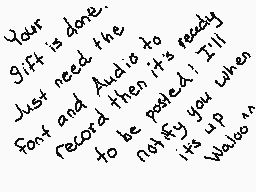 Your
gift is done.
Just need the
font and Audio to
record then it's ready
to be posted! I'll
notify you when
it's up
Waloo ^^